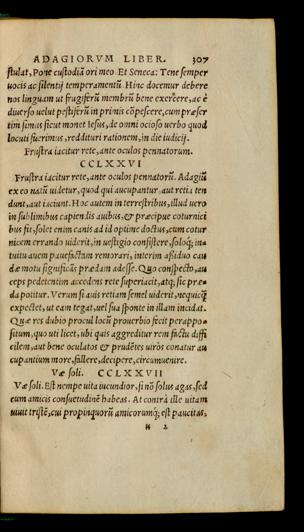 ADAGIORVM LIBER. 307
stulat, Pone custodiã ori meo. Et Seneca: Tene semper
uocis ac silentij temperamentũ. Hinc docemur debere
nos linguam ut frugiferũ membrũ bene exercere, ac è
diuerso uelut pestiferũ in primis cõpescere, cum præser
tim simus sicut monet Iesus, de omni ocioso uerbo quod
locuti fuerimus, reddituri rationem, in die iudicij.
Frustra iacitur rete, ante oculos pennatorum.
CCLXXVI
Frustra iacitur rete, ante oculos pennatorũ. Adagiũ
ex eo natũ uidetur, quod qui aucupantur, aut retia ten
dunt, aut iaciunt. Hoc autem in terrestribus, illud uero
in sublimibus capiendis auibus, & præcipue coturnici
bus fit, solet enim canis ad id optime doctus, cum cotur
nicem errando uiderit, in uestigio consistere, soloq; in-
tuitu auem pauefactam remorari, interim assiduo cau
dæ motu significãs prædam adesse. Quo conspecto, au
ceps pedetentim accedens rete superiacit, atq; sic præ-
da potitur. Verum si auis retiam semel uiderit, nequicq̃
expectet, ut eam tegat, uel sua sponte in illam incidat.
Quæ res dubio procul locũ prouerbio fecit perappo-
situm, quo uti licet, ubi quis aggreditur rem factu diffi
cilem, aut bene oculatos & prudẽtes uiros conatur au
cupantium more, fallere, decipere, circumuenire.
Væ soli. CCLXXVII
Væ soli. Est nempe uita iucundior, si nõ solus agas, sed
cum amicis consuetudinẽ habeas. At contrà ille uitam
uiuit tristẽ, cui propinquorũ amicorumq; est paucitas,
2